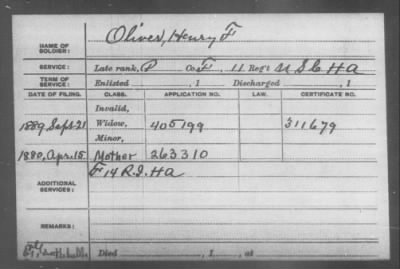 NAME OF SOLDIER: Oliver, Henry F
SERVICE: Late rank, P Co. F, 11 Reg't U S C H A
TERM OF SERVICE: Enlisted , 1 Discharged , 1
DATE OF FILING. CLASS. APPLICATION NO. LAW. CERTIFICATE NO.
Invalid,
1889, Sept. 21 Widow, 405199 311679
Minor,
1880, Apr. 15 Mother 263310
ADDITIONAL SERVICES: F 14 R.I. H A
REMARKS:
Died , 1 , at